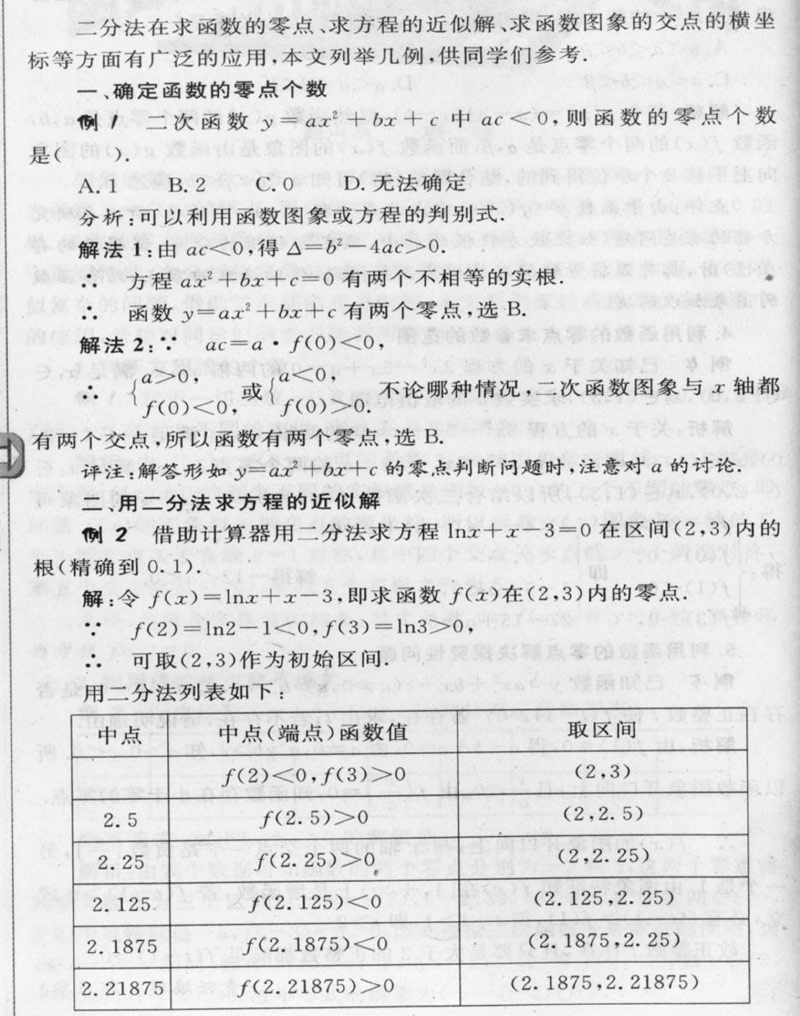 二分法在求函数的零点、求方程的近似解、求函数图象的交点的横坐
标等方面有广泛的应用,本文列举几例,供同学们参考.
一、确定函数的零点个数
例 1 二次函数 y=ax²+bx+c 中 ac<0,则函数的零点个数
是( ).
A. 1 B. 2 C. 0 D. 无法确定
分析:可以利用函数图象或方程的判别式.
解法 1:由 ac<0,得 Δ=b²-4ac>0.
∴ 方程 ax²+bx+c=0 有两个不相等的实根.
∴ 函数 y=ax²+bx+c 有两个零点,选 B.
解法 2:∵ ac=a·f(0)<0,
∴ {a>0, f(0)<0, 或 {a<0, f(0)>0. 不论哪种情况,二次函数图象与 x 轴都
有两个交点,所以函数有两个零点,选 B.
评注:解答形如 y=ax²+bx+c 的零点判断问题时,注意对 a 的讨论.
二、用二分法求方程的近似解
例 2 借助计算器用二分法求方程 lnx+x-3=0 在区间(2,3)内的
根(精确到 0.1).
解:令 f(x)=lnx+x-3,即求函数 f(x)在(2,3)内的零点.
∵ f(2)=ln2-1<0,f(3)=ln3>0,
∴ 可取(2,3)作为初始区间.
用二分法列表如下:
中点 中点(端点)函数值 取区间
f(2)<0,f(3)>0 (2,3)
2.5 f(2.5)>0 (2,2.5)
2.25 f(2.25)>0 (2,2.25)
2.125 f(2.125)<0 (2.125,2.25)
2.1875 f(2.1875)<0 (2.1875,2.25)
2.21875 f(2.21875)>0 (2.1875,2.21875)